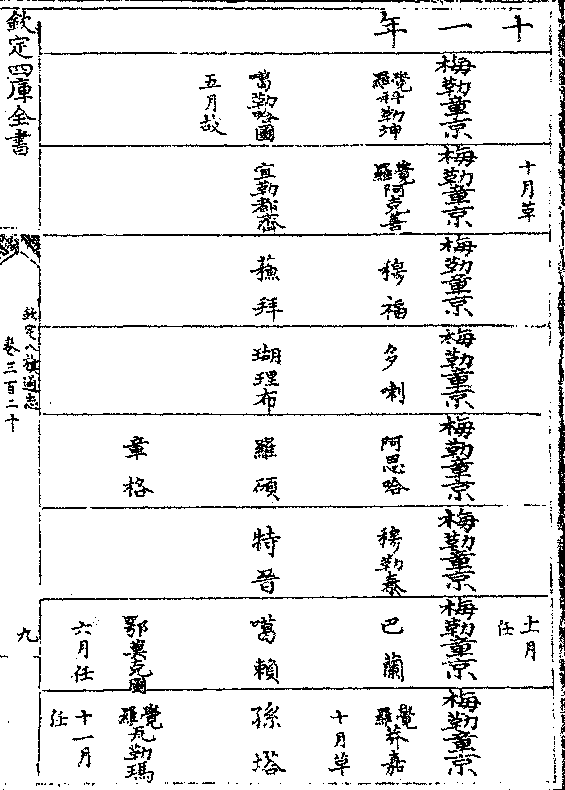 十一年
梅勒章京
覺羅科勒坤
噶勒哈圖
五月故
十月革
梅勒章京
覺羅阿克善
宜勒都齊
梅勒章京
穆福
蘓拜
梅勒章京
多喇
瑚理布
梅勒章京
阿思哈
羅碩
章格
梅勒章京
穆勒泰
特晉
十一月
任
梅勒章京
巴蘭
噶賴
鄂莫克圖
六月任
梅勒章京
覺羅莽嘉
十月革
孫塔
覺羅瓦勒瑪
十一月
任
欽定四庫全書
欽定八旗通志
卷三百二十
九